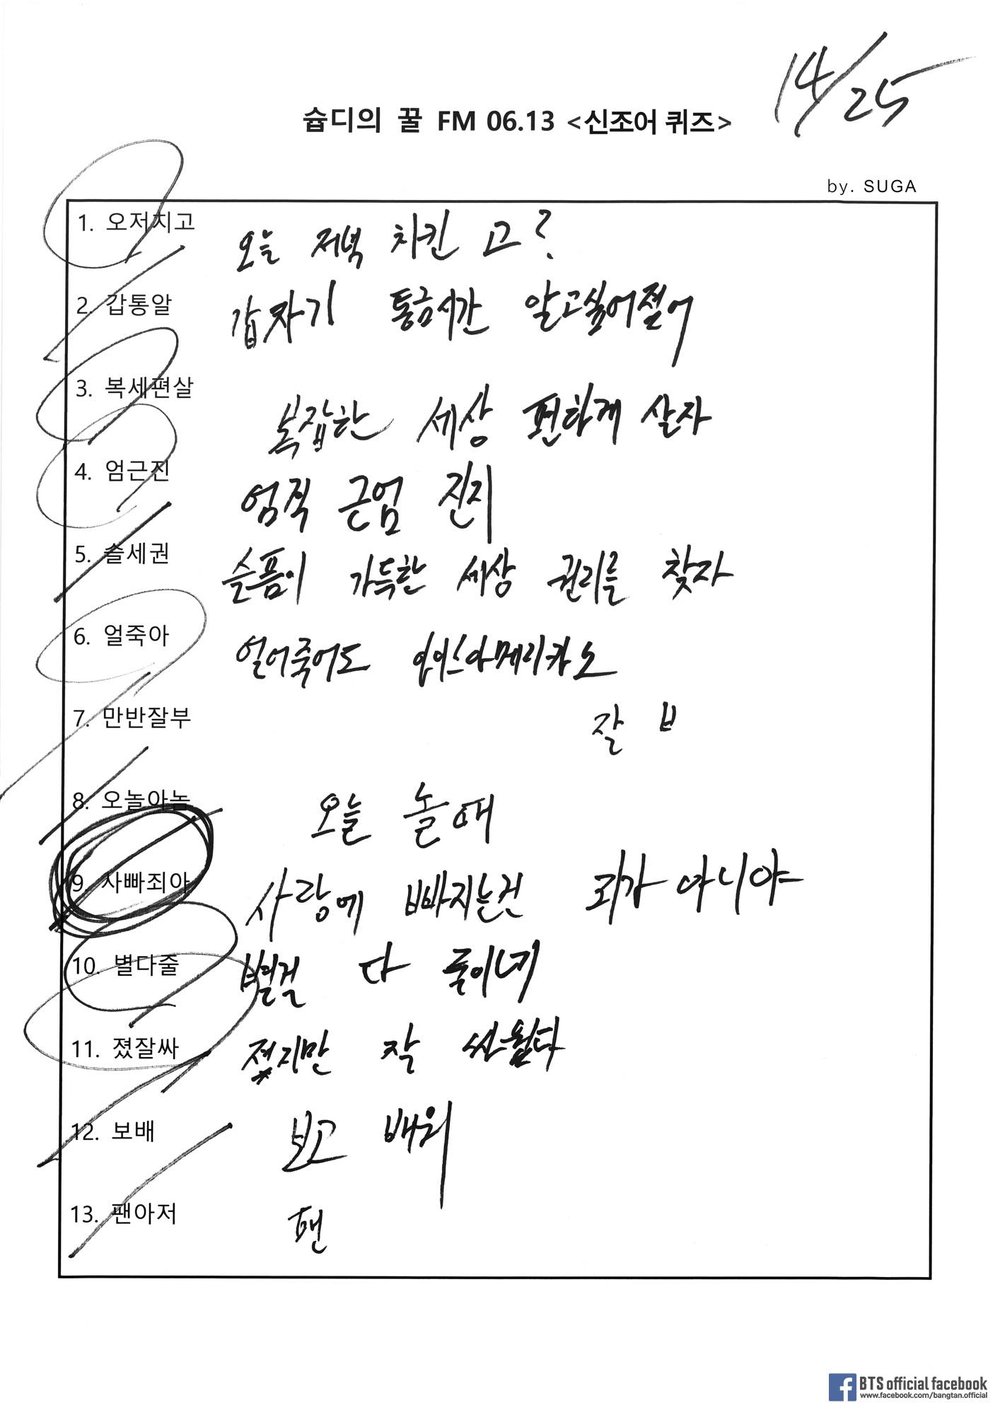 14/25
슙디의 꿀 FM 06.13 <신조어 퀴즈>
by. SUGA
1. 오저치고 오늘 저녁 치킨 고?
2. 갑통알 갑자기 통금시간 알고싶어졌어
3. 복세편살 복잡한 세상 편하게 살자
4. 엄근진 엄격 근엄 진지
5. 슬세권 슬픔이 가득한 세상 권리를 찾자
6. 얼죽아 얼어죽어도 아이스아메리카노
7. 만반잘부 잘 ㅂ
8. 오놀아놈 오늘 놀때
9. 사빠죄아 사랑에 빠지는건 죄가 아니야
10. 별다줄 별걸 다 줄이네
11. 졌잘싸 졌지만 잘 싸웠다
12. 보배 보고 배워
13. 팬아저 팬
BTS official facebook
www.facebook.com/bangtan.official